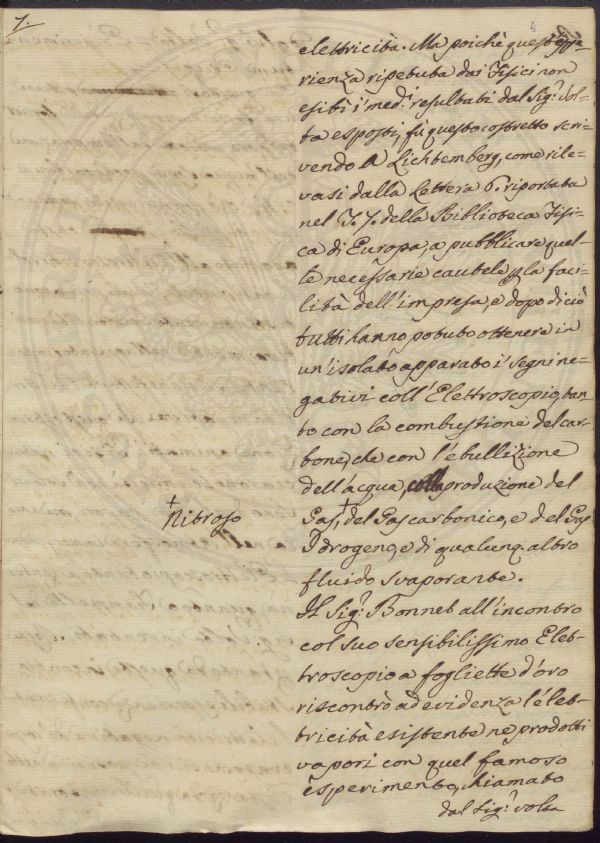 7.
elettricità. Ma poichè quest'espe=
rienza ripetuta dai Fisici non
esibì i med.i resultati dal Sig.r Vol=
ta esposti, fù questo costretto scri=
vendo a Lichtemberg, come rile=
vasi dalla Lettera 6. riportata
nel T. 7. della Biblioteca Fisi=
ca di Europa, a pubblicare quel=
le necessarie cautele p la faci=
lità dell'impresa, e dopo di ciò
tutti hanno potuto ottenere in
un'isolato apparato i segni ne=
gativi coll'Elettroscopio, tan
to con la combustione del car=
bone, che con l'ebullizione
dell'acqua, colla produzione del
+
Nitroso
Gas,+ del Gas carbonico, e del Gas
Idrogeno, e di qualunq. altro
fluido svaporante.
Il Sig.r Bonnet all'incontro
col suo sensibilissimo Elet=
troscopio a fogliette d'oro
riscontrò ad evidenza l'elet=
tricità esistente ne prodotti
vapori con quel famoso
esperimento, chiamato
dal Sig.r Volta